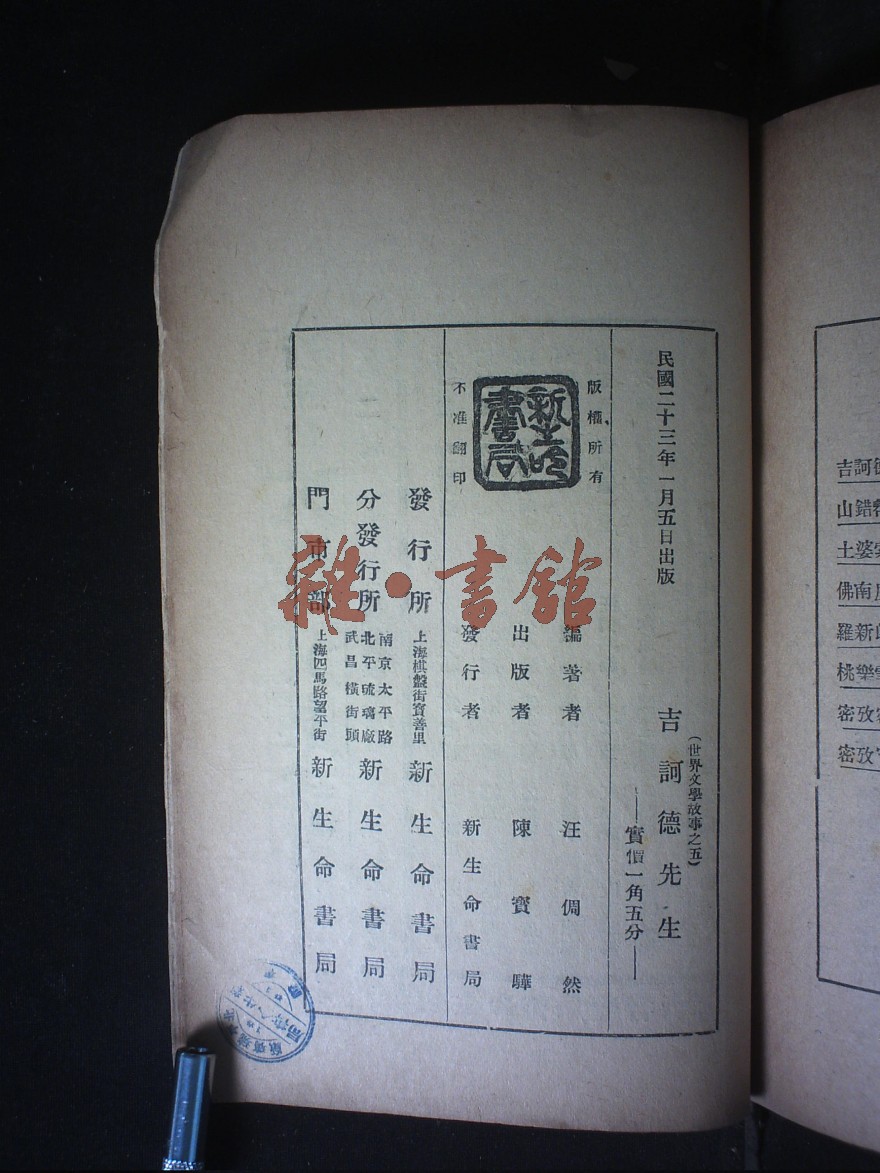 民國二十三年一月五日出版
吉訶德先生
(世界文學故事之五)
——實價一角五分——
版權所有
新生命書局
不准翻印
編著者 汪倜然
出版者 陳寶驊
發行者 新生命書局
發行所 上海棋盤街寶善里 新生命書局
分發行所
南京太平路
北平琉璃廠
武昌橫街頭
新生命書局
門市部 上海四馬路望平街 新生命書局
雜·書館